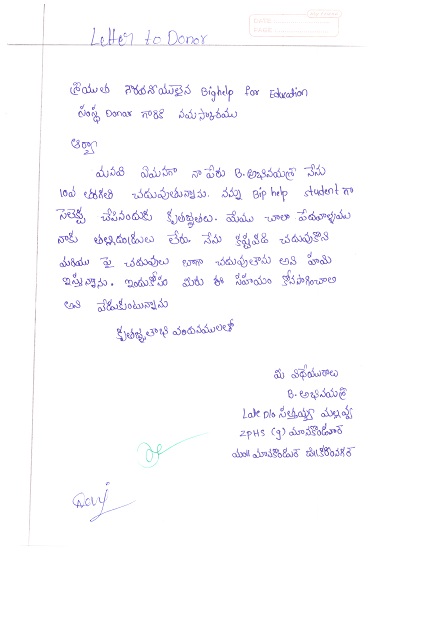 Letter to Donor
శ్రీయుత గౌరవనీయులైన Bighelp for Education
సంస్థ Donor గారికి నమస్కారము
ఆర్యా
మనవి ఏమనగా నా పేరు B. అభినయశ్రీ నేను
10వ తరగతి చదువుతున్నాను. నన్ను Big help student గా
సెలెక్ట్ చేసినందుకు కృతజ్ఞతలు. మేము చాలా పేదవాళ్ళము
నాకు తల్లిదండ్రులు లేరు. నేను కష్టపడి చదువుకొని
మరియు పై చదువులు బాగా చదువుతాను అని హామి
ఇస్తున్నాను. ఇందుకోసం మీరు ఈ సహాయం కొనసాగించాలి
అని వేడుకుంటున్నాను
కృతజ్ఞతాభి వందనములతో
మీ విధేయురాలు
B. అభినయశ్రీ
Late D/o సత్తయ్య మల్లవ్వ
ZPHS (g) మానకొండూర్
మం॥ మానకొండూర్ జి॥ కరీంనగర్